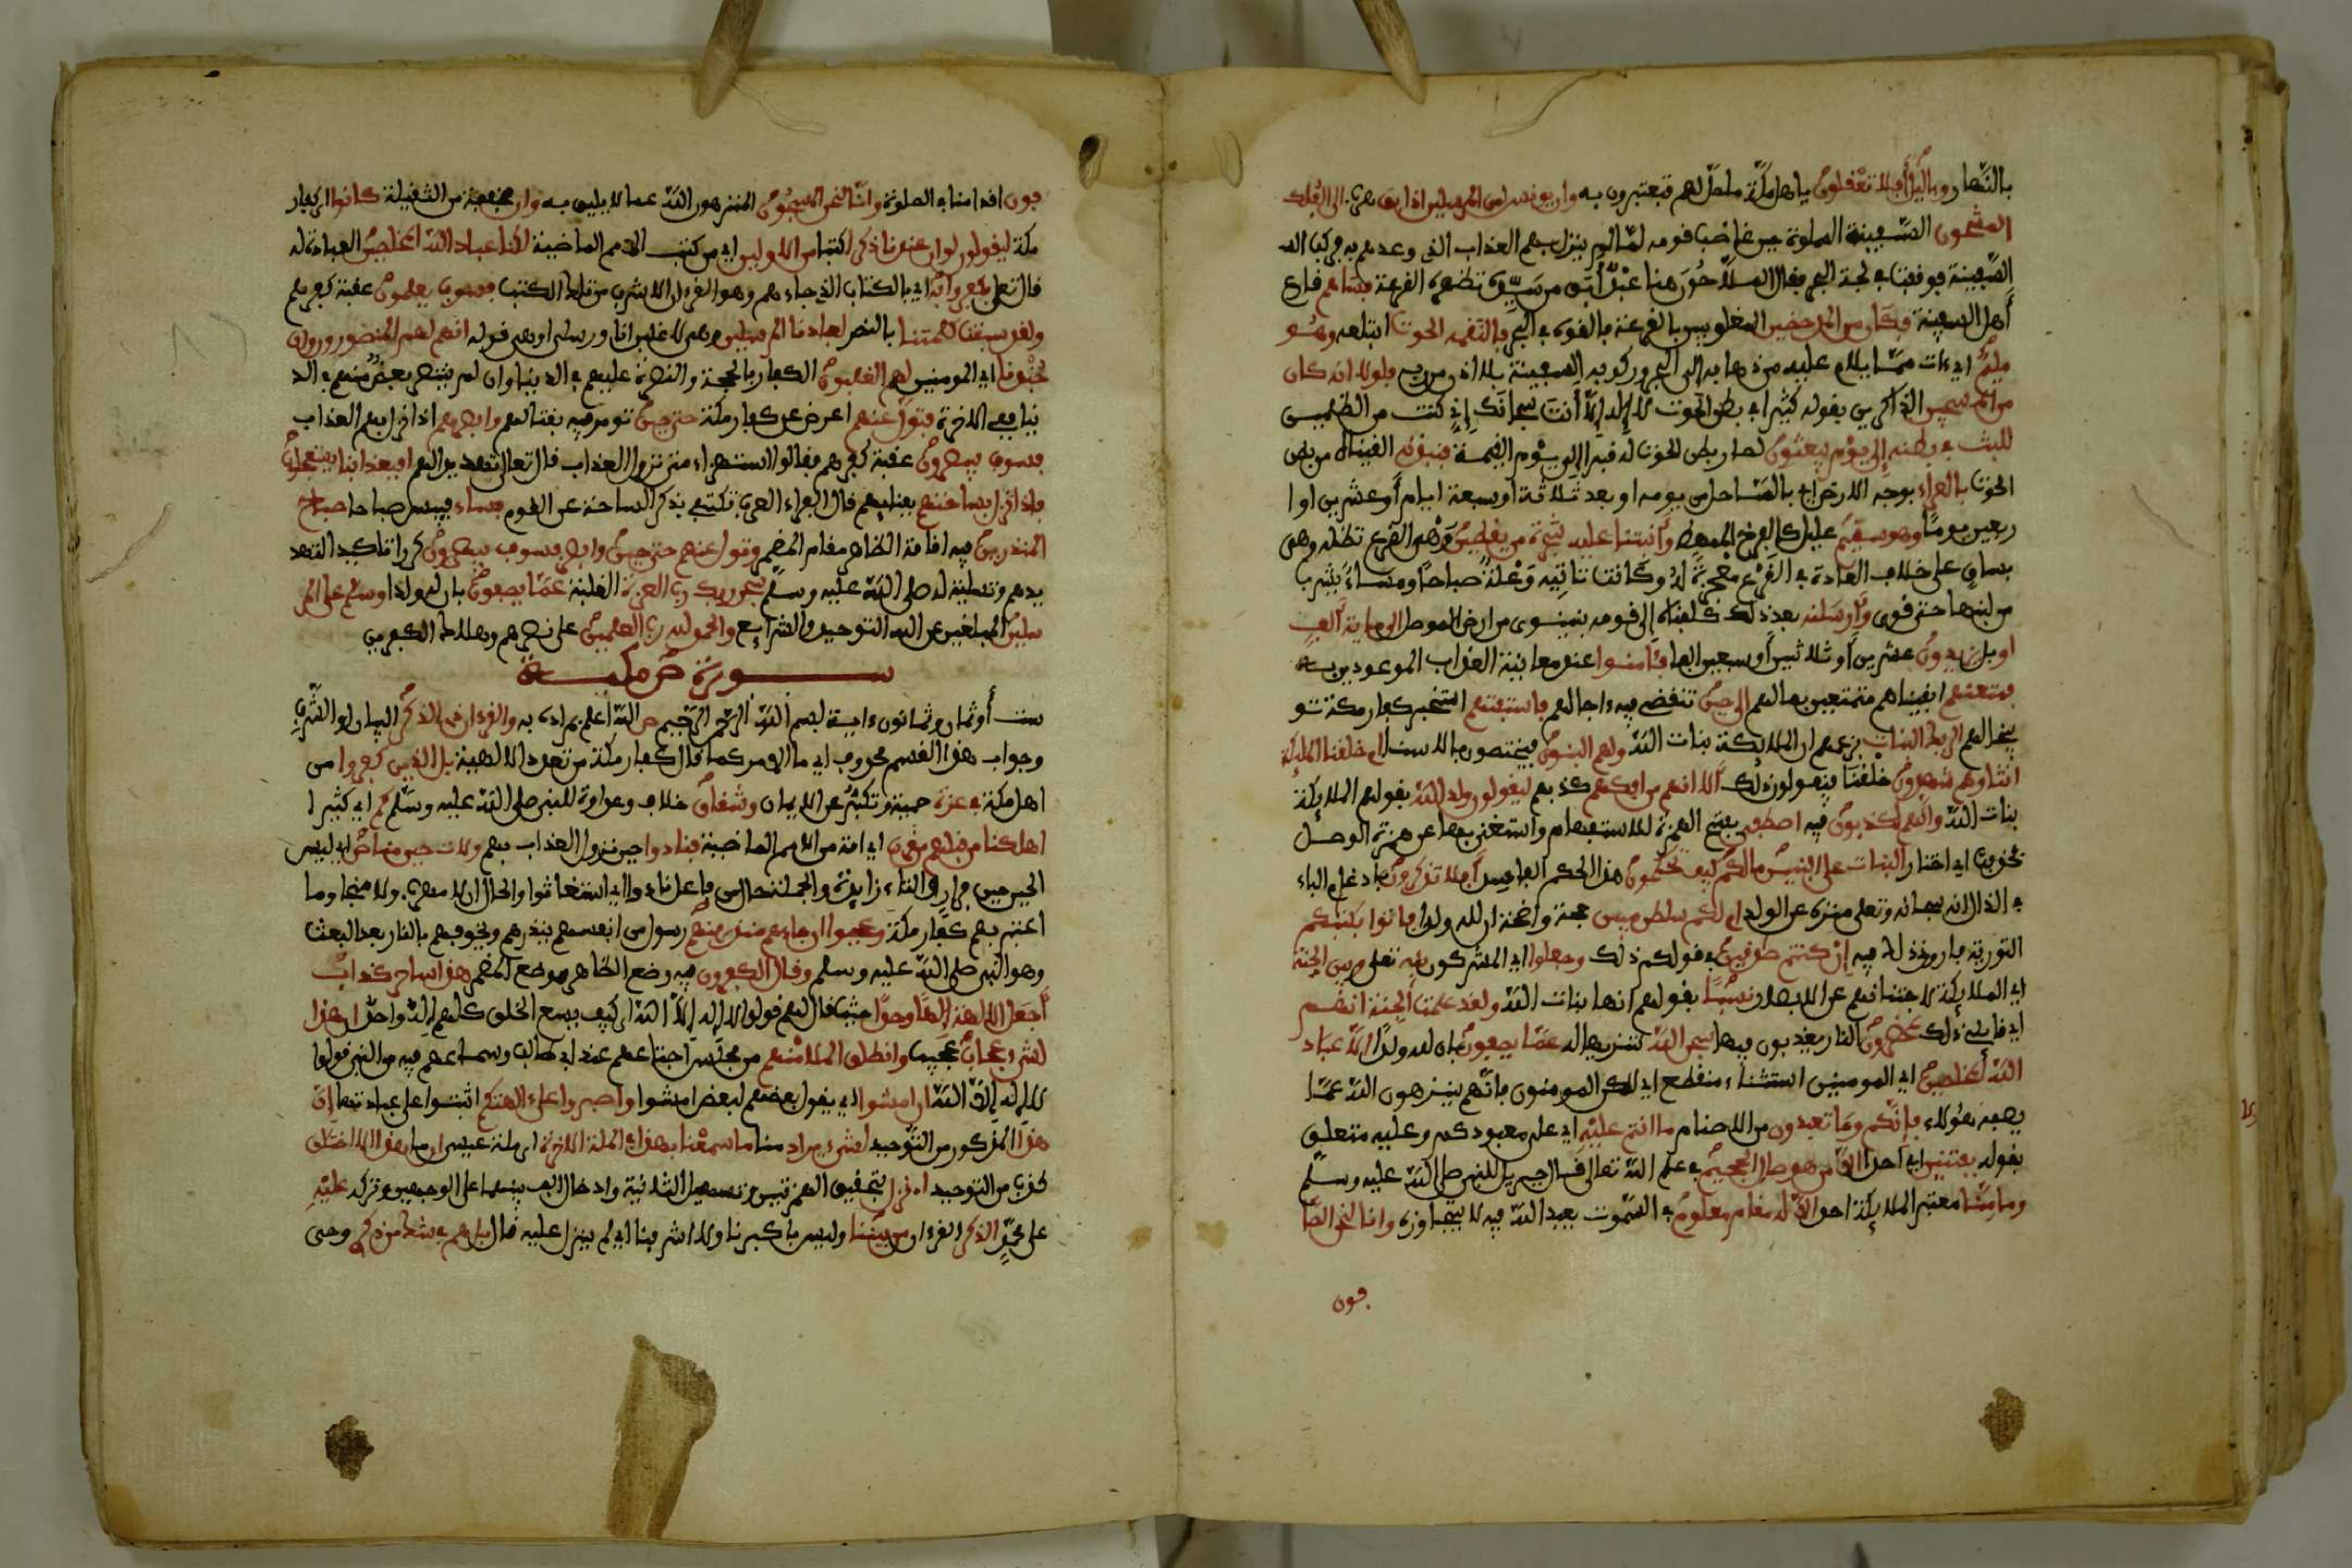 بالنهار وباليل أفلا تعقلون يا أهل مكة ما حل لهم فتعتبرون به وإن يونس لمن المرسلين إذ أبق هرب إلى الفلك
المشحون السفينة المملوة حين غاضب قومه لما لم ينزل بهم العذاب الذي وعدهم به فركب الس
السفينة فوقفت في لجة البحر فقال الملاحون هنا عبد أبق من سيده تظهره القرعة فساهم قارع
أهل السفينة فكان من المدحضين المغلوبين بالقرعة فألقوه في البحر فالتقمه الحوت ابتلعه وهو
مليم أي ءات بما يلام عليه من ذهابه إلى البحر وركوبه السفينة بلا إذن من ربه فلولا أنه كان
من المسبحين الذاكرين بقوله كثيرا في بطن الحوت لا إله إلا أنت سبحانك إني كنت من الظلمين
للبث في بطنه إلى يوم يبعثون لصار بطن الحوت له قبرا إلى يوم القيمة فنبذنه ألقيناه من بطن
الحوت بالعراء بوجه الارض أي بالساحل من يومه او بعد ثلاثة أو سبعة ايام أو عشرين او ا
ربعين يوما وهو سقيم عليل كالفرخ الممعط وأنبتنا عليه شجرة من يقطين وهي القرع تظله وهي
بساق على خلاف العادة في القرع معجزة له وكانت تاتيه وعلة صباحا ومساء يشرب
من لبنها حتى قوي وأرسلنه بعد ذلك كقبله إلى قومه بنينوى من ارض الموصل إلى ماية ألف
او بل يزيدون عشرين أو ثلاثين أو سبعين الفا فئامنوا عند معاينة العذاب الموعودين به
فمتعنهم ابقيناهم متمتعين بمالهم إلى حين تنقضي فيه ءاجالهم فاستفتهم استخبر كفار مكة تو
بيخا لهم ألربك البنات بزعمهم ان الملايكة بنات الله ولهم البنون فيختصون بالاسنى أم خلقنا الملئكة
انثا وهم شهدون خلقنا فيقولون ذلك ألا انهم من افكهم كذبهم ليقولون ولد الله بقولهم الملايكة
بنات الله وانهم لكذبون فيه اصطفى بفتح الهمزة للاستفهام واستغني بها عن همزة الوصل
فحذفت اي اختار البنات على البنين ما لكم كيف تحكمون هذا الحكم الفاسد أفلا تذكرون بادغام التاء
في الذال انه سبحانه وتعلى منزه عن الولد ام لكم سلطن مبين حجة واضحة ان لله ولدا فاتوا بكتبكم
التورية فاروني ذلك فيه إن كنتم صدقين في قولكم ذلك وجعلوا اي المشركون بينه تعلى وبين الجنة
اي الملايكة لاجتنانهم عن الابصار نسبا بقولهم انها بنات الله ولقد علمت الجنة انهم
اي قايلي ذلك لمحضرون النار يعذبون فيها سبحن الله تنزيها له عما يصفون بان لله ولدا إلا عباد
الله المخلصين اي المومنين استثناء منقطع اي لكن المومنون فانهم ينزهون الله عما
يصفه هؤلاء فإنكم وما تعبدون من الاصنام ما انتم عليه اي على معبودكم وعليه متعلق
بقوله بفتنين اي احدا إلا من هو صال الجحيم في علم الله تعالى قال جبريل للنبي صلى الله عليه وسلم
وما منا معشر الملايكة احد الا له مقام معلوم في السموت يعبد الله فيه لا يتجاوزه وانا لنحن الصا
فون
فون اقدامنا في الصلوة وانا لنحن المسبحون المنزهون الله عما لا يليق به وان مخففة من الثقيلة كانوا اي كفار
مكة ليقولون لو ان عندنا ذكرا كتبا من الاولين اي من كتب الامم الماضية لكنا عباد الله المخلصين العبادة له
قال تعلى فكفروا به اي بالكتاب الذي جاءهم وهو القرءان الاشرف من تلك الكتب فسوف يعلمون عقبة كفرهم
ولقد سبقت كلمتنا بالنصر لعبادنا المرسلين وهي لاغلبن انا ورسلي او هي قوله انهم لهم المنصورون وان
جندنا اي المومنين لهم الغلبون الكفار بالحجة والنصرة عليهم في الدنيا وان لم ينتصر بعض منهم في الد
نيا ففي الاخرة فتول عنهم اعرض عن كفار مكة حتى حين تومر فيه بقتالهم وابصرهم اذا نزل بهم العذاب
فسوف يبصرون عقبة كفرهم فقالوا استهزاء متى نزول العذاب قال تعالى تهديدا لهم افبعذابنا يستعجلون
فإذا نزل بساحتهم بفنايهم قال الفراء العرب تكتفي بذكر الساحة عن القوم فساء فبيس صباحا صباح
المنذرين فيه اقامة الظاهر مقام المضمر وتول عنهم حتى حين وابصر فسوف يبصرون كرر تاكيد التهد
يدهم وتسلية له صلى الله عليه وسلم سبحن ربك رب العزة الغلبة عما يصفون بان له ولدا وسلم على المر
سلين المبلغين عن الله التوحيد والشرايع والحمد لله رب العلمين على نصرهم وهلاك الكفرين
سورة ص مكية
ست أو ثمان وثمانون ءاية بسم الله الرحمن الرحيم ص الله أعلم بمراده به والقرءان ذي الذكر البيان او الشرف
وجواب هذا القسم محذوف اي ما الامر كما قال كفار مكة من تعدد الالهية بل الذين كفروا من
اهل مكة في عزة حمية وتكبر عن الايمان وشقاق خلاف وعداوة للنبي صلى الله عليه وسلم كم اي كثيرا
اهلكنا من قبلهم من قرن اي امة من الامم الماضية فنادوا حين نزول العذاب بهم ولات حين مناص اي ليس
الحين حين فرار والتاء زايدة والجملة حال من فاعل نادوا اي استغاثوا والحال ان لا مهرب ولا منجا وما
اعتبر بهم كفار مكة وعجبوا ان جاءهم منذر منهم رسول من انفسهم ينذرهم ويخوفهم بالنار بعد البعث
وهو النبي صلى الله عليه وسلم وقال الكفرون فيه وضع الظاهر موضع المضمر هذا ساحر كذاب
أجعل الالهة إلها وحدا حيث قال لهم قولوا لا إله إلا الله اي كيف يسع الخلق كلهم إله واحد ان هذا
لشيء عجاب عجيب وانطلق الملأ منهم من مجلس اجتماعهم عند ابي طالب وسماعهم فيه من النبي قولوا
لا إله إلا الله ان امشوا اي يقول بعضهم لبعض امشوا واصبروا على ءالهتكم اثبتوا على عبادتها إن
هذا المذكور من التوحيد لشيء يراد منا ما سمعنا بهذا في الملة الاخرة اي ملة عيسى ان ما هذا الا اختلق
كذب من التوحيد اءنزل بتحقيق الهمزتين وتسهيل الثانية وادخال الف بينهما على الوجهين وتركه عليه
على محمد الذكر القرءان من بيننا وليس باكبرنا ولا اشرفنا اي لم ينزل عليه قال بل هم في شك من ذكري وحي